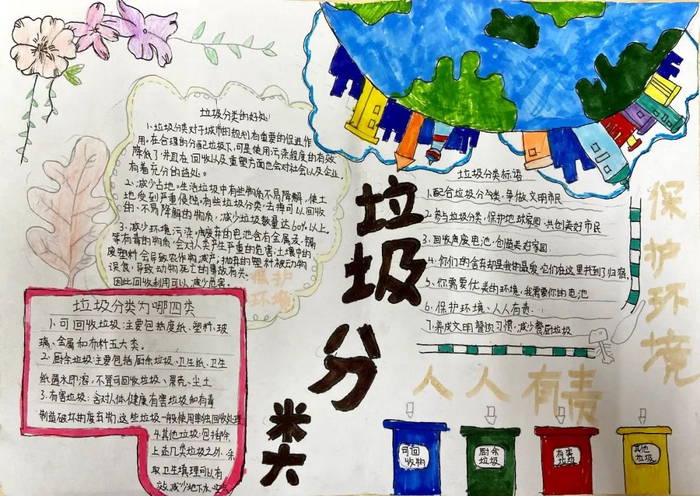 垃圾分类的好处
1.垃圾分类对于城市的规划有重要的促进作
用。在合理的分配垃圾下,可是使用污染程度的有效
降低了,并且在回收以及重塑方面也会对社会以及企业
有着充分的益处。
2.减少占地。生活垃圾中有些物质不易降解,使土
地受到严重侵蚀。有些垃圾分类,去掉可以回收
的、不易降解的物质,减少垃圾数量达60%以上。
3.减少环境污染。废弃的电池含有金属汞、镉
等有毒的物质,会对人类产生严重的危害;土壤中的
废塑料会导致农作物减产;抛弃的塑料被动物
误食,导致动物死亡的事故有关。
因此回收利用可以减少危害。
保护
环境
垃圾分类为哪四类
1.可回收垃圾:主要包括废纸、塑料、玻
璃、金属和布料五大类。
2.厨余垃圾:主要包括厨余垃圾、卫生纸、卫生
纸遇水即溶,不算可回收垃圾、果壳、尘土
3.有害垃圾:含对人体健康有害垃圾和有毒
破坏的废弃物,这些垃圾一般使用单独回收处理
4.其他垃圾:包括除
上述几类垃圾之外,采
取卫生填埋可以有
效减少地下水
垃圾分类
垃圾分类标语
1.配合垃圾分类,争做文明市民
2.参与垃圾分类,保护地球家园,共创美好市民
3.回收角废电池,创造美好家园
4.你们的舍弃却是我的最爱,它们在这里找到了归宿。
5.你需要优美的环境,我需要你的电池
6.保护环境、人人有责
7.养成文明习惯,减少餐厨垃圾
保护环境
人人有责
可回
收物
厨余
垃圾
有害
垃圾
其他
垃圾